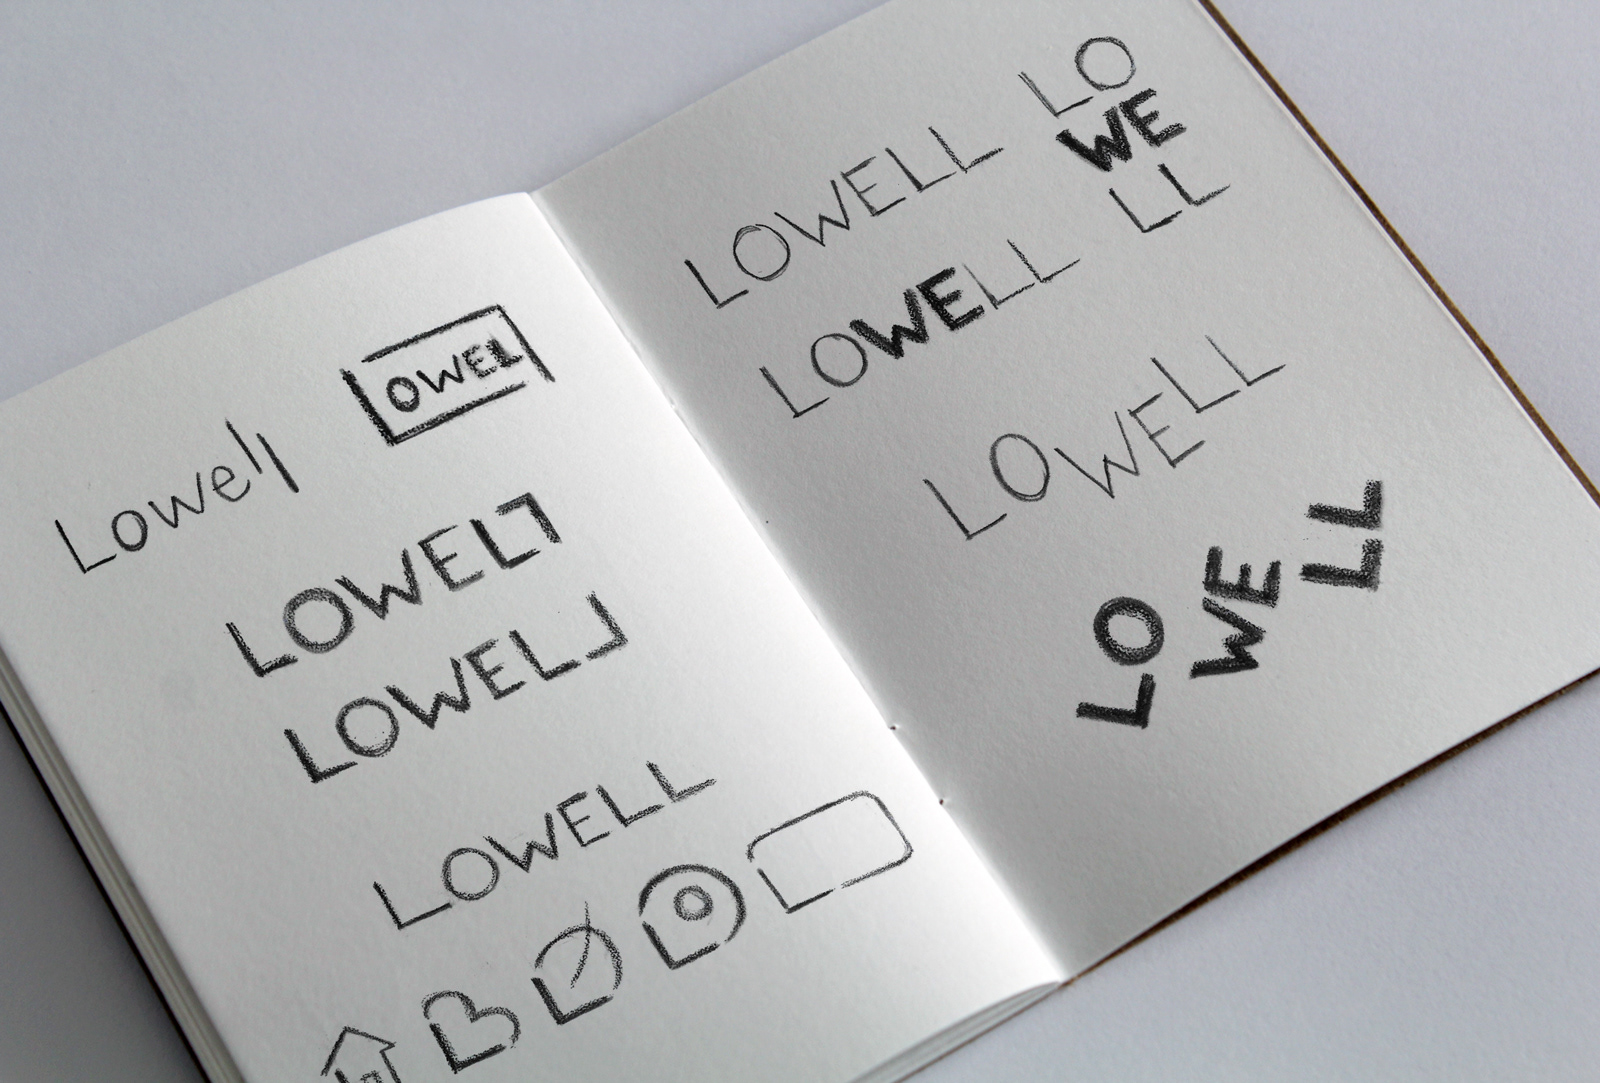 Lowell
LOWELL
LOWELL
LOWELL
LOWELL
LOWELL
LO
WE
LL
LOWELL
LOWELL
LO
WE
LL